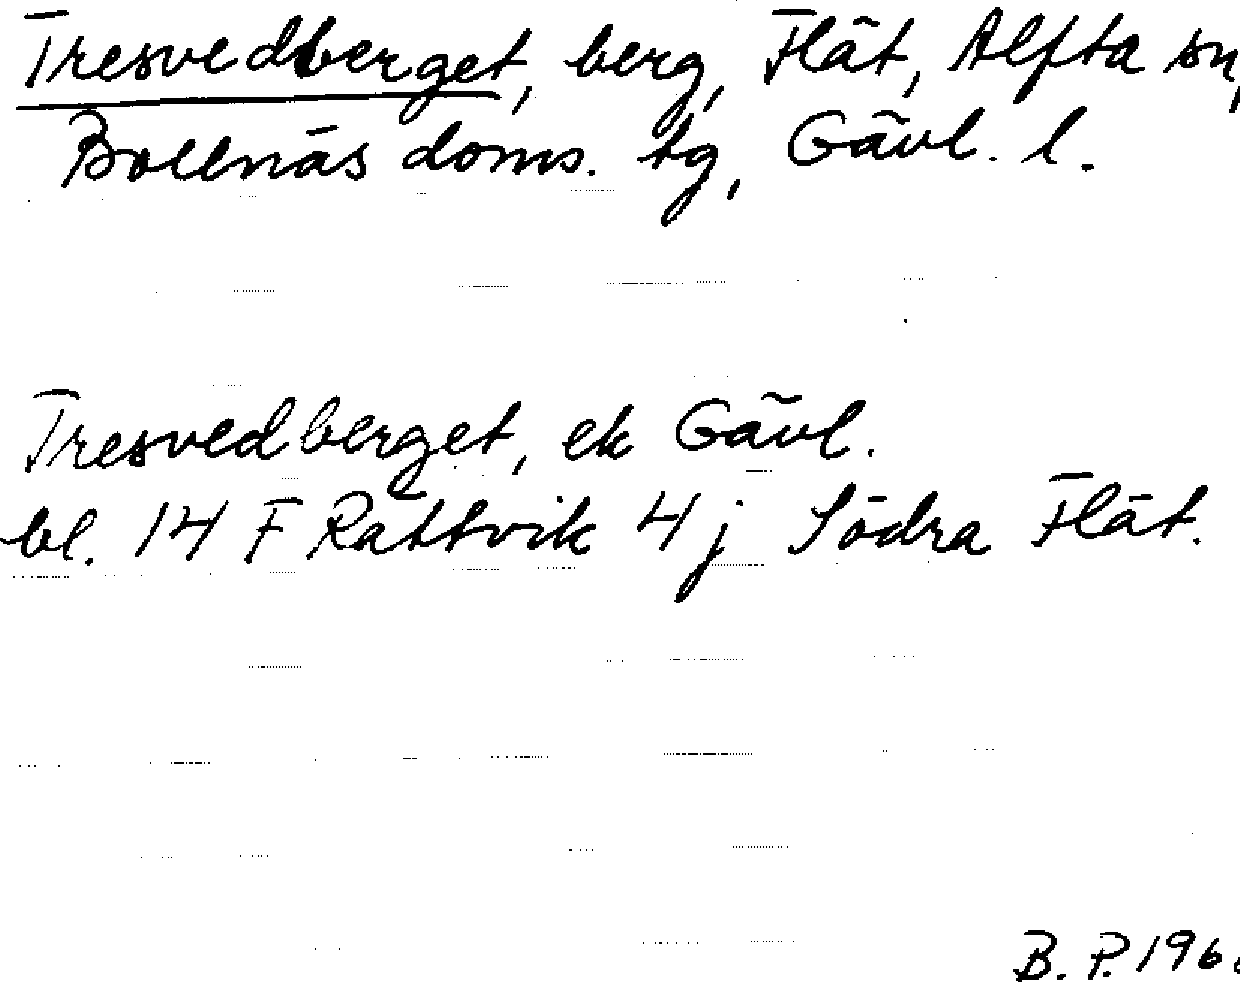 Tresvedberget, berg, Flät, Alfta sn,
Bollnäs doms. tg, Gävl. l.
Tresvedberget, ek Gävl.
bl. 14 F Rättvik 4 j Södra Flät.
B. P.